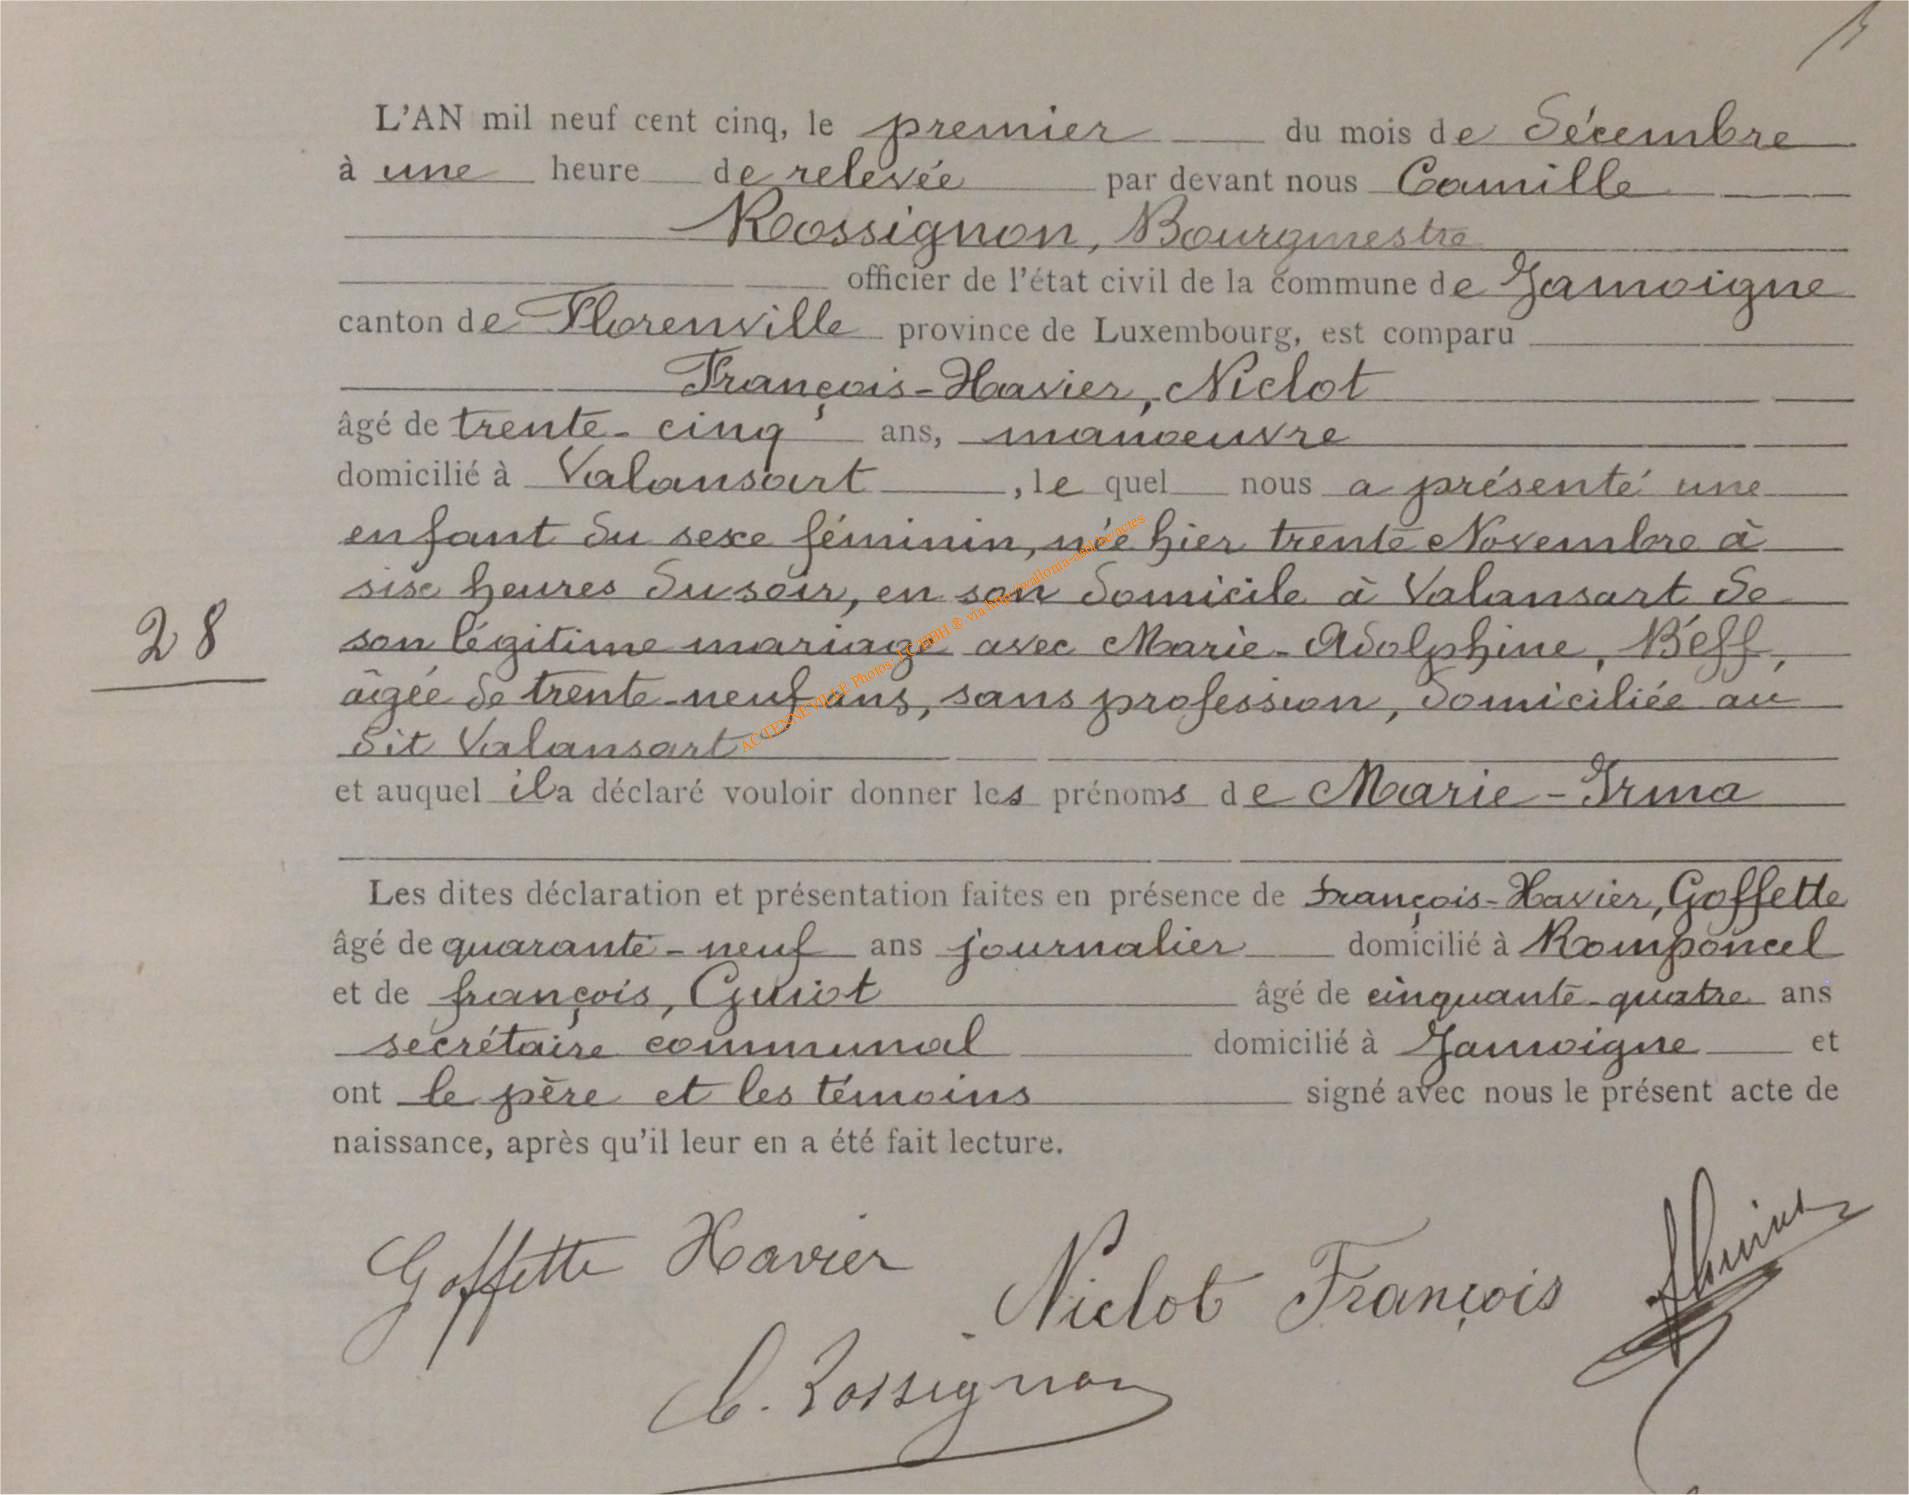 L'AN mil neuf cent cinq, le premier du mois de Décembre
à une heure de relevée par devant nous Camille
Rossignon, Bourgmestre
officier de l'état civil de la commune de Jamoigne
canton de Florenville province de Luxembourg, est comparu
François-Xavier, Niclot
âgé de trente-cinq ans, manoeuvre
domicilié à Valansart, le quel nous a présenté une
enfant du sexe féminin, née hier trente Novembre à
six heures du soir, en son domicile à Valansart de
28
son légitime mariage avec Marie-Adolphine, Beff,
âgée de trente-neuf ans, sans profession, domiciliée au
dit Valansart
et auquel il a déclaré vouloir donner les prénoms de Marie-Irma
Les dites déclaration et présentation faites en présence de François-Xavier, Goffette
âgé de quarante-neuf ans journalier domicilié à Romponcel
et de françois, Guiot âgé de cinquante-quatre ans
secrétaire communal domicilié à Jamoigne et
ont le père et les témoins signé avec nous le présent acte de
naissance, après qu'il leur en a été fait lecture.
Goffette Xavier
Niclot François
C. Rossignon